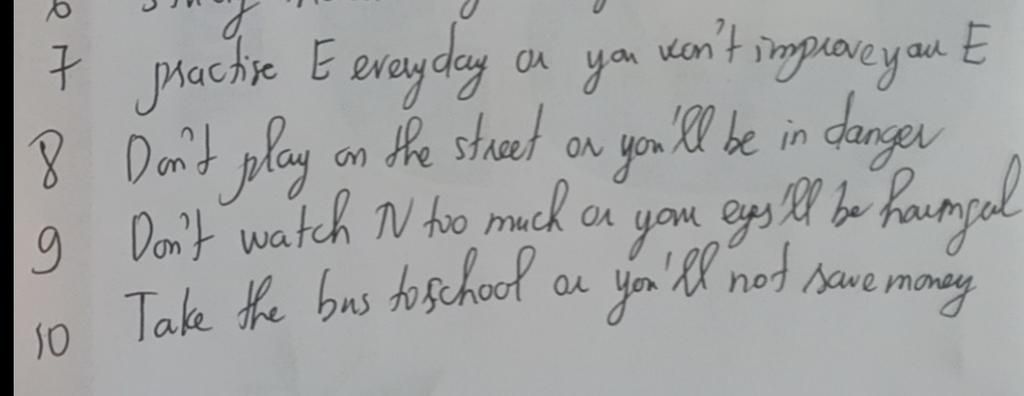 6
7 practise E everyday or you won't improve your E
8 Don't play on the street or you'll be in danger
9 Don't watch TV too much or your eyes'll be harmful
10 Take the bus to school or you'll not save money